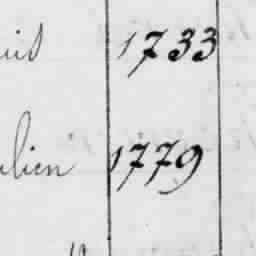 uis 1733
ulien 1779